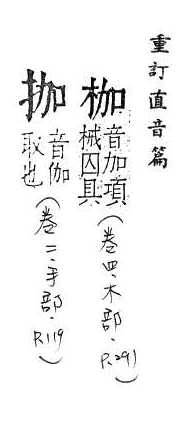 重訂直音篇
枷 音加項械囚具（卷四、木部．P.291）
抛 音伽取也（卷二、手部．P.119）